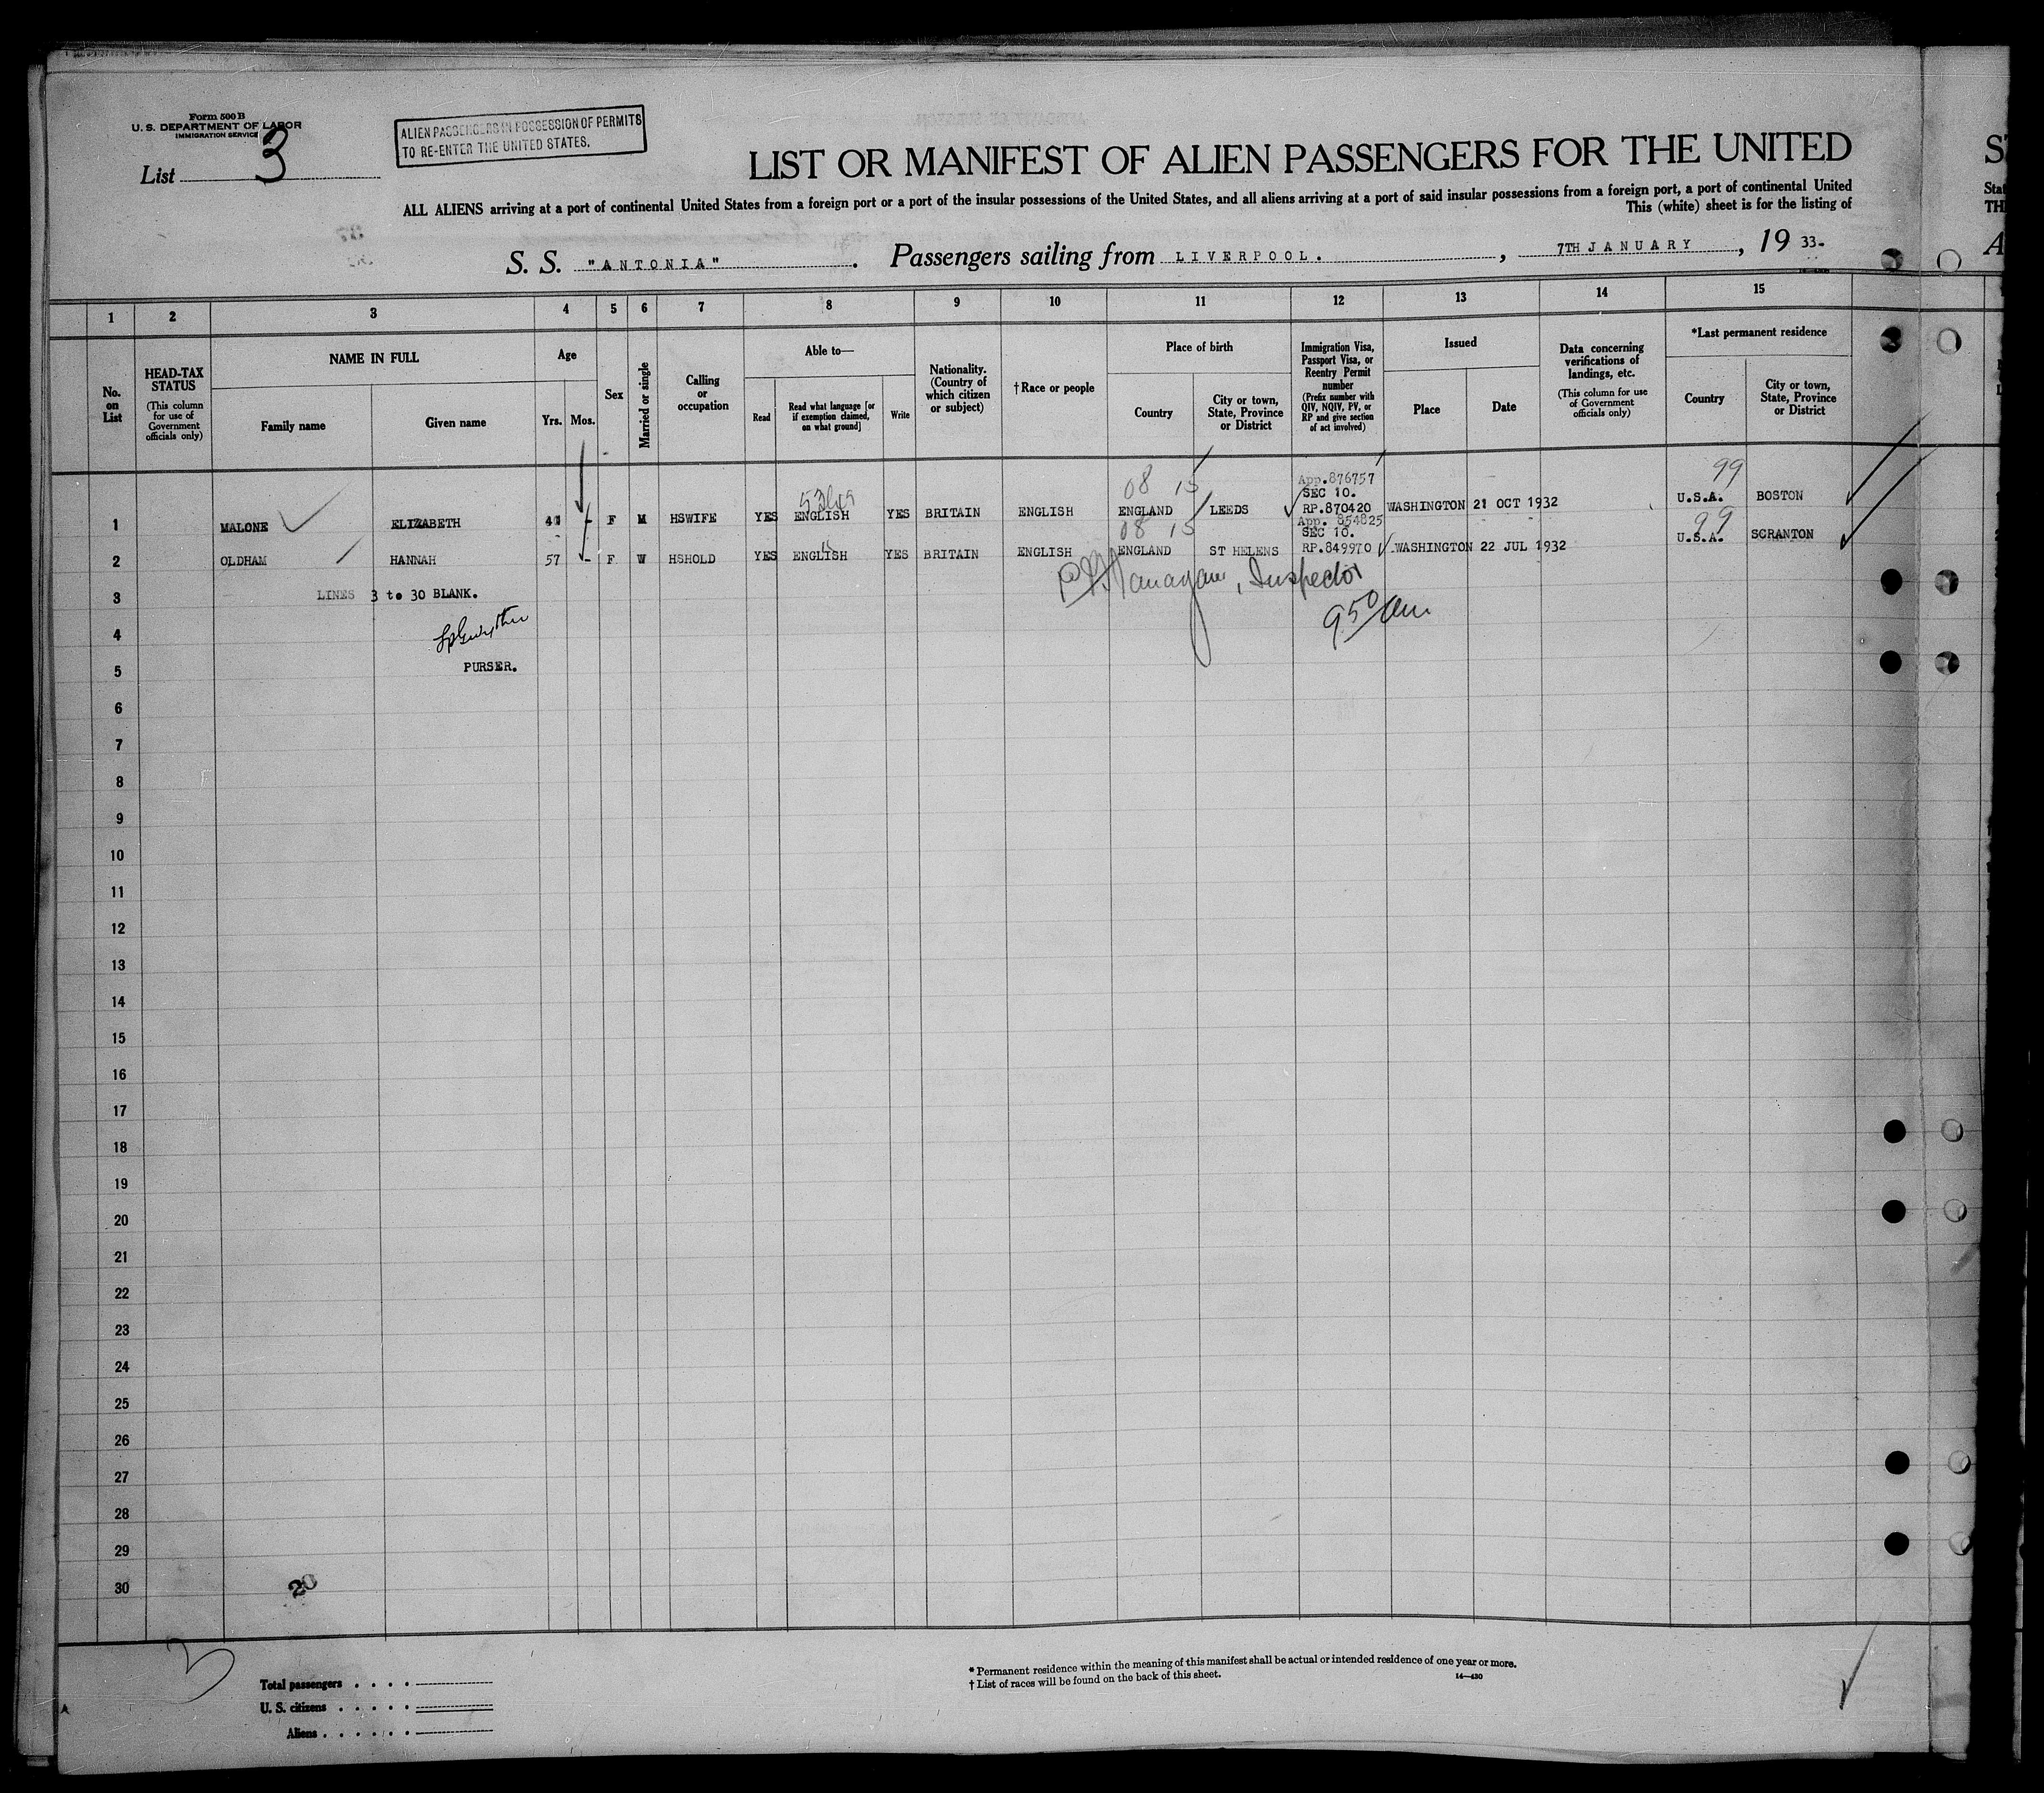 Form 500 B
U. S. DEPARTMENT OF LABOR
IMMIGRATION SERVICE
List 3
ALIEN PASSENGERS IN POSSESSION OF PERMITS
TO RE-ENTER THE UNITED STATES.
LIST OR MANIFEST OF ALIEN PASSENGERS FOR THE UNITED
ALL ALIENS arriving at a port of continental United States from a foreign port or a port of the insular possessions of the United States, and all aliens arriving at a port of said insular possessions from a foreign port, a port of continental United
This (white) sheet is for the listing of
S. S. "ANTONIA". Passengers sailing from LIVERPOOL. , 7TH JANUARY , 19 33-
1 2 3 4 5 6 7 8 9 10 11 12 13 14 15
No. on List
HEAD-TAX STATUS
(This column for use of Government officials only)
NAME IN FULL
Family name
Given name
Age
Yrs. Mos.
Sex
Married or single
Calling or occupation
Able to—
Read
Read what language [or if exemption claimed, on what ground]
Write
Nationality. (Country of which citizen or subject)
† Race or people
Place of birth
Country
City or town, State, Province or District
Immigration Visa, Passport Visa, or Reentry Permit number
(Prefix number with QIV, NQIV, PV, or RP and give section of act involved)
Issued
Place
Date
Data concerning verifications of landings, etc.
(This column for use of Government officials only)
*Last permanent residence
Country
City or town, State, Province or District
08 15 App.876757 99
SEC 10.
1 MALONE ELIZABETH 41 - F M HSWIFE YES ENGLISH YES BRITAIN ENGLISH ENGLAND LEEDS RP.870420 WASHINGTON 21 OCT 1932 U.S.A. BOSTON
08 15 App. 854825 99
SEC 10.
2 OLDHAM HANNAH 57 - F W HSHOLD YES ENGLISH YES BRITAIN ENGLISH ENGLAND ST HELENS RP.849970 WASHINGTON 22 JUL 1932 U.S.A. SCRANTON
3 LINES 3 to 30 BLANK.
Inspector
9 50 am
4
5 PURSER.
6
7
8
9
10
11
12
13
14
15
16
17
18
19
20
21
22
23
24
25
26
27
28
29
30
20
3
Total passengers
U. S. citizens
Aliens
* Permanent residence within the meaning of this manifest shall be actual or intended residence of one year or more.
† List of races will be found on the back of this sheet.
14—430